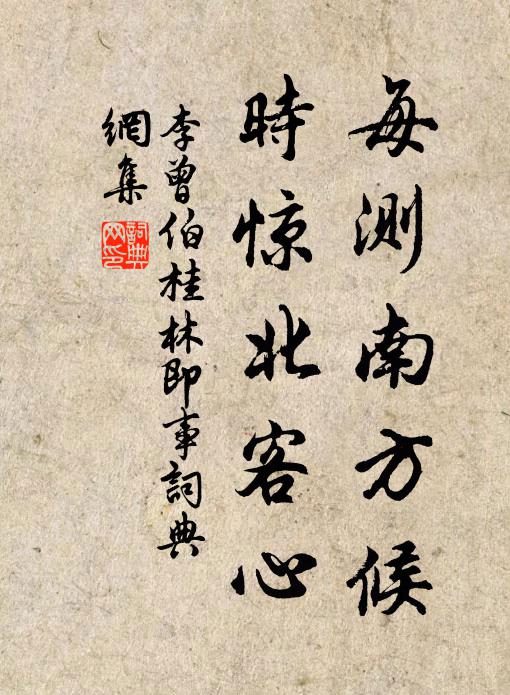 每测南方候
時惊北客心
李曾伯桂林即事詞典
網集
詞典
网印